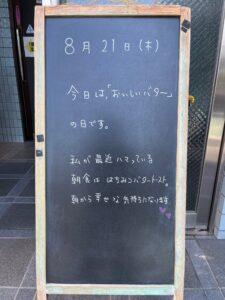 8月21日(木)
今日は、「おいしいバター」
の日です。
私が最近ハマっている
朝食ははちみつバタートースト。
朝から幸せな気持ちになります